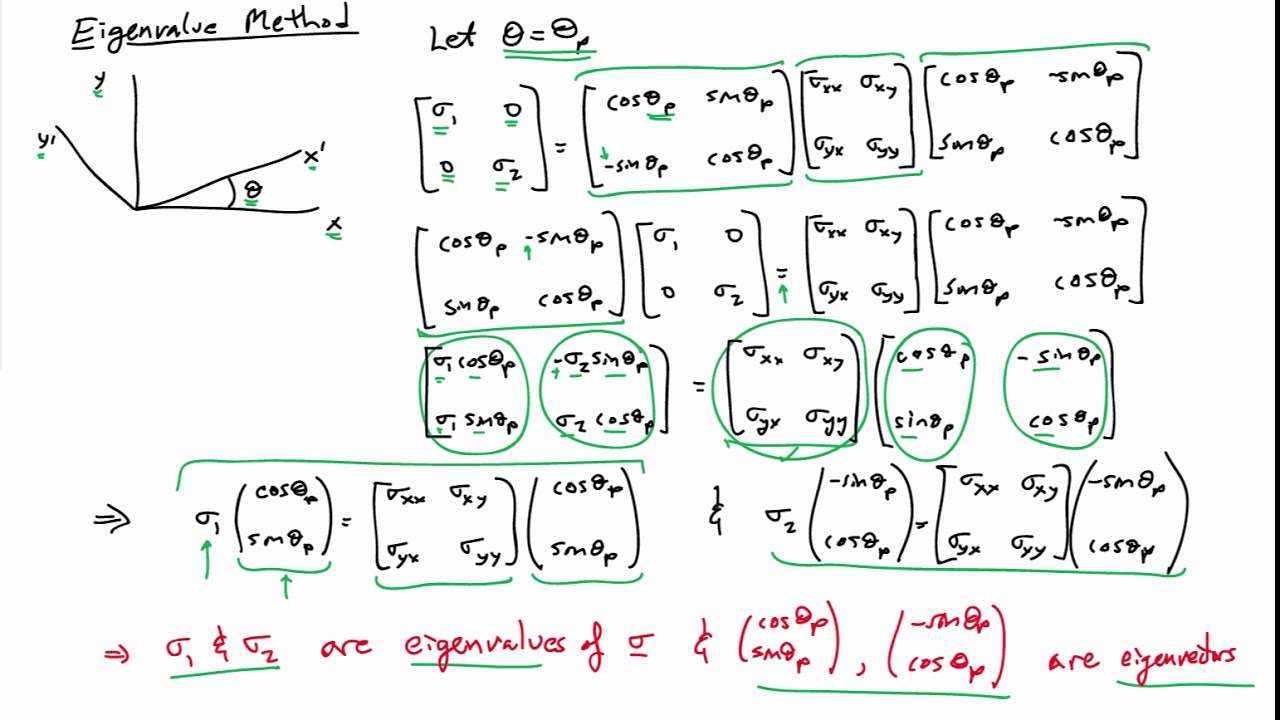 Eigenvalue Method
y
y'
x'
θ
x
Let θ = θp
[σ1 0; 0 σ2] = [cosθp sinθp; -sinθp cosθp] [σxx σxy; σyx σyy] [cosθp -sinθp; sinθp cosθp]
[cosθp -sinθp; sinθp cosθp] [σ1 0; 0 σ2] = [σxx σxy; σyx σyy] [cosθp -sinθp; sinθp cosθp]
[σ1 cosθp -σ2 sinθp; σ1 sinθp σ2 cosθp] = [σxx σxy; σyx σyy] [cosθp -sinθp; sinθp cosθp]
⇒ σ1 (cosθp; sinθp) = [σxx σxy; σyx σyy] (cosθp; sinθp) & σ2 (-sinθp; cosθp) = [σxx σxy; σyx σyy] (-sinθp; cosθp)
⇒ σ1 & σ2 are eigenvalues of σ & (cosθp; sinθp), (-sinθp; cosθp) are eigenvectors